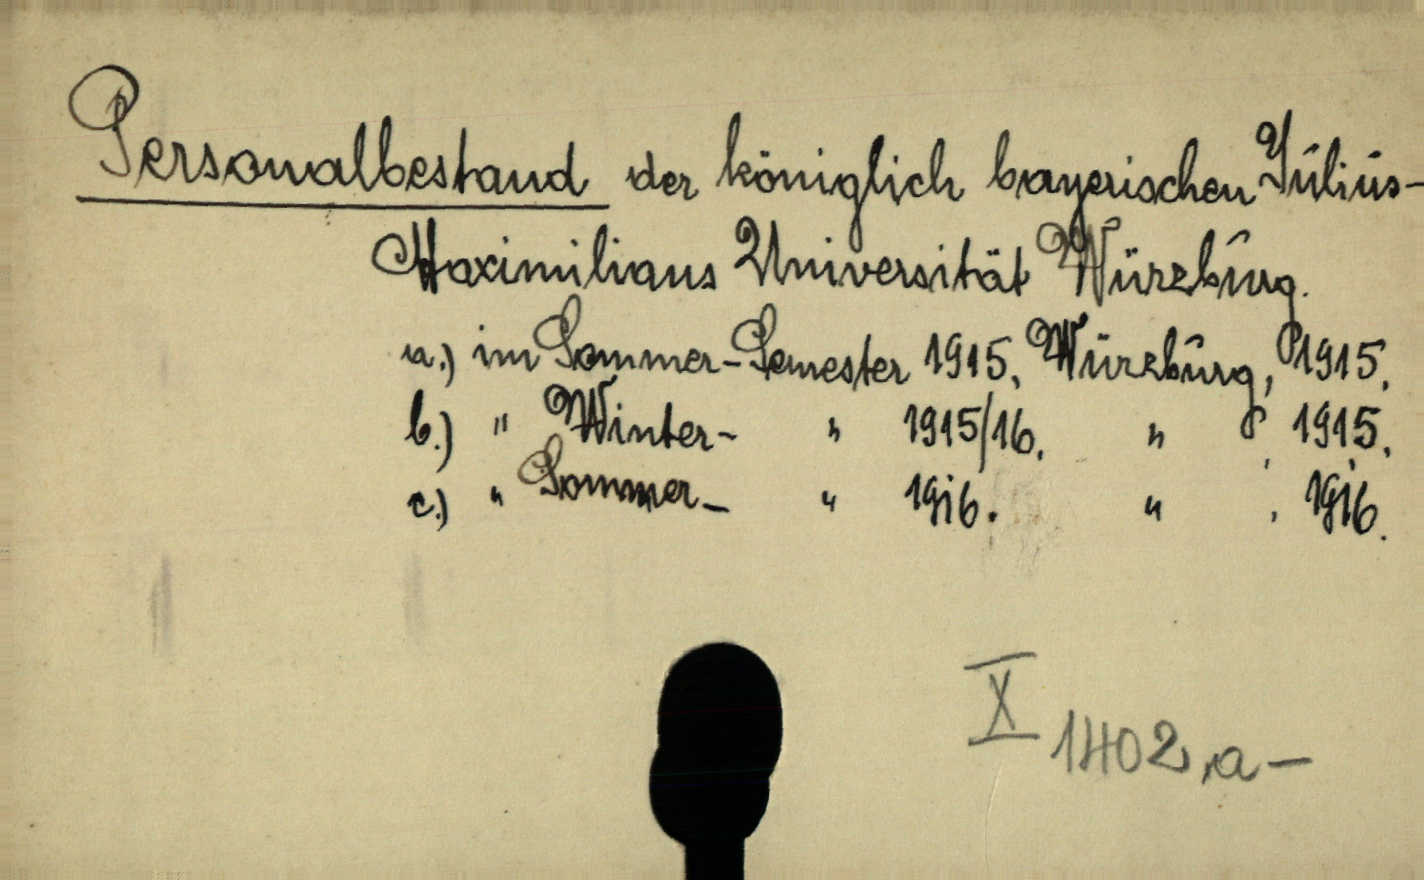 Personalbestand der königlich bayerischen Julius-
Maximilians Universität Würzburg.
a.) im Sommer-Semester 1915. Würzburg, 1915.
b.) " Winter- " 1915/16. " , 1915.
c.) " Sommer- " 1916. " , 1916.
X 1402,a-